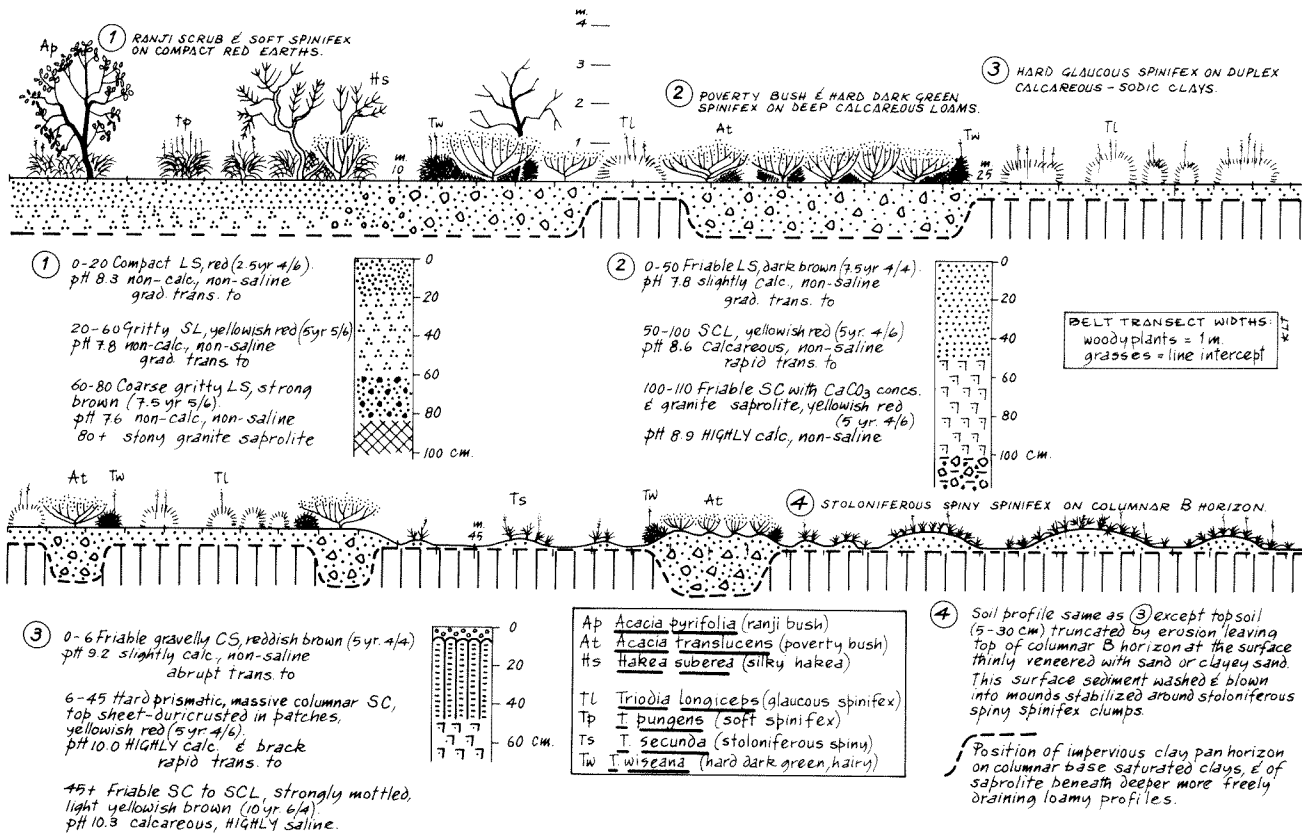 Ap
1 RANJI SCRUB & SOFT SPINIFEX
ON COMPACT RED EARTHS.
tp
Hs
m.
4
3
2
1
m.
10
Tw
Tl
2 POVERTY BUSH & HARD DARK GREEN
SPINIFEX ON DEEP CALCAREOUS LOAMS.
At
Tw
m.
25
3 HARD GLAUCOUS SPINIFEX ON DUPLEX
CALCAREOUS - SODIC CLAYS.
Tl
1 0-20 Compact LS, red (2.5yr 4/6).
pH 8.3 non-calc, non-saline
grad. trans. to
20-60 Gritty SL, yellowish red (5yr 5/6)
pH 7.8 non-calc., non-saline
grad. trans. to
60-80 Coarse gritty LS, strong
brown (7.5 yr 5/6)
pH 7.6 non-calc, non-saline
80+ stony granite saprolite
0
20
40
60
80
100 cm.
2 0-50 Friable LS, dark brown (7.5yr 4/4).
pH 7.8 slightly calc., non-saline
grad. trans. to
50-100 SCL, yellowish red (5yr. 4/6)
pH 8.6 Calcareous, non-saline
rapid trans. to
100-110 Friable SC with CaCO3 concs.
& granite saprolite, yellowish red
(5 yr. 4/6)
pH 8.9 HIGHLY calc., non-saline
0
20
40
60
80
100 cm.
BELT TRANSECT WIDTHS:
woody plants = 1 m.
grasses = line intercept
KLT
At
Tw
Tl
m.
45
Ts
Tw
At
4 STOLONIFEROUS SPINY SPINIFEX ON COLUMNAR B HORIZON.
3 0-6 Friable gravelly CS, reddish brown (5 yr. 4/4)
pH 9.2 slightly calc, non-saline
abrupt trans. to
6-45 Hard prismatic, massive columnar SC,
top sheet-duricrusted in patches,
yellowish red (5 yr. 4/6).
pH 10.0 HIGHLY calc. & brack
rapid trans. to
45+ Friable SC to SCL, strongly mottled,
light yellowish brown (10 yr. 6/4)
pH 10.3 calcareous, HIGHLY saline.
0
20
40
60 cm.
Ap Acacia pyrifolia (ranji bush)
At Acacia translucens (poverty bush)
Hs Hakea suberea (silky hakea)
Tl Triodia longiceps (glaucous spinifex)
Tp T. pungens (soft spinifex)
Ts T. secunda (stoloniferous spiny)
Tw T. wiseana (hard dark green, hairy)
4 Soil profile same as 3 except topsoil
(5-30 cm) truncated by erosion leaving
top of columnar B horizon at the surface
thinly veneered with sand or clayey sand.
This surface sediment washed & blown
into mounds stabilized around stoloniferous
spiny spinifex clumps.
Position of impervious clay pan horizon
on columnar base saturated clays, & of
saprolite beneath deeper more freely
draining loamy profiles.